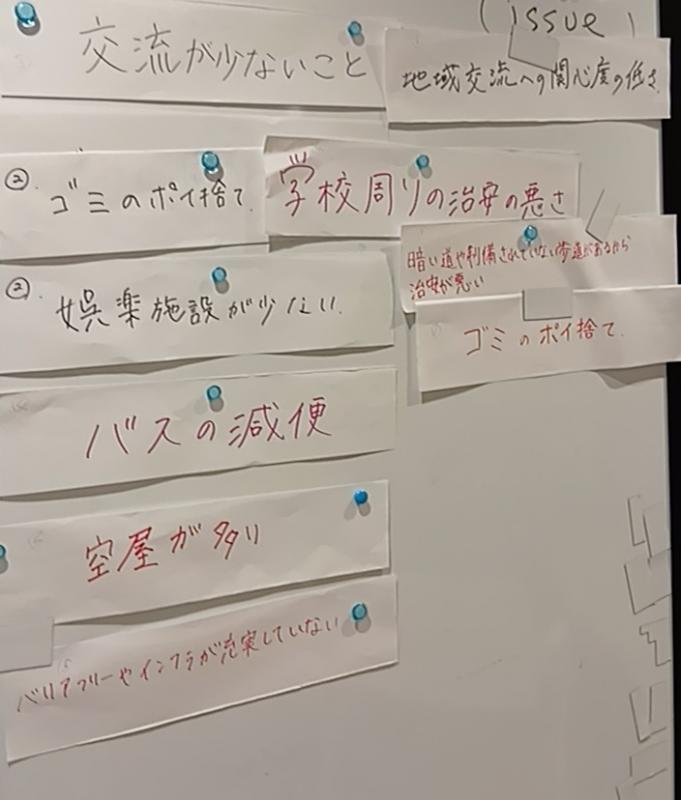 (issue)
交流が少ないこと
地域交流への関心度の低さ
② ゴミのポイ捨て
学校周りの治安の悪さ
暗い道や利備されていない歩道があるから
治安が悪い
② 娯楽施設が少ない
ゴミのポイ捨て
バスの減便
空屋が多い
バリアフリーやインフラが充実していない